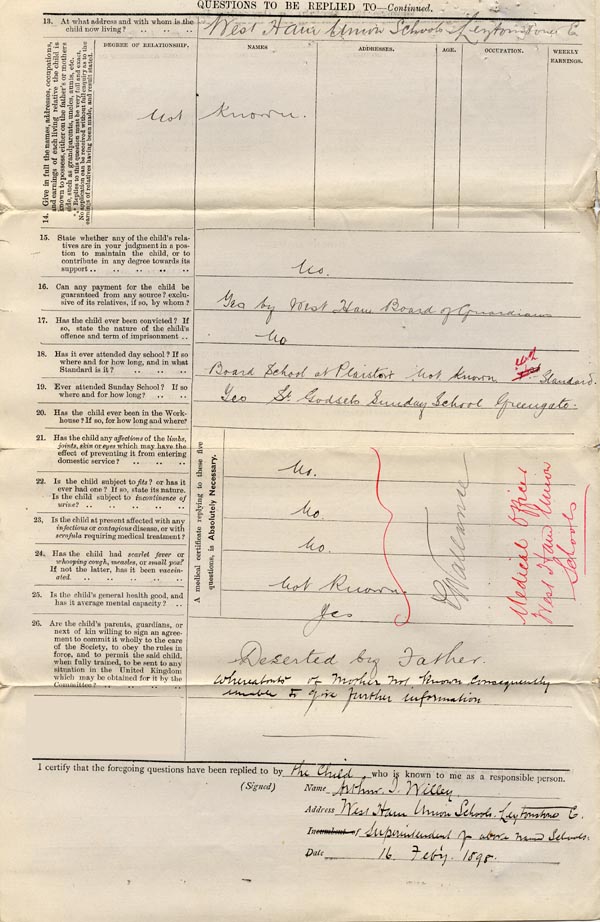 QUESTIONS TO BE REPLIED TO—Continued.
13. At what address and with whom is the
child now living? .. .. ..
West Ham Union Schools Leytonstone E
14. Give in full the names, addresses, occupations,
and earnings of each living relative the child is
known to possess, either on the father's or mother's
side, such as grandparents, uncles, aunts, etc.
*** Replies to this question must be very full and exact.
No application can be received without full enquiry as to the
earnings of relatives having been made, and result stated.
DEGREE OF RELATIONSHIP.
NAMES
ADDRESSES.
AGE.
OCCUPATION.
WEEKLY
EARNINGS.
Not Known.
15. State whether any of the child's rela-
tives are in your judgment in a posi-
tion to maintain the child, or to
contribute in any degree towards its
support .. .. .. .. ..
No.
16. Can any payment for the child be
guaranteed from any source? exclu-
sive of its relatives, if so, by whom?
Yes by West Ham Board of Guardians
17. Has the child ever been convicted? If
so, state the nature of the child's
offence and term of imprisonment ..
No
18. Has it ever attended day school? If so
where and for how long, and in what
Standard is it? .. .. ..
Board School at Plaistow Not Known Standard.
19. Ever attended Sunday School? If so
where and for how long? .. ..
Yes St. Sunday School Greengate.
20. Has the child ever been in the Work-
house? If so, for how long and where?
A medical certificate replying to these five
questions, is Absolutely Necessary.
21. Has the child any affections of the limbs,
joints, skin or eyes which may have the
effect of preventing it from entering
domestic service? .. .. ..
No.
22. Is the child subject to fits? or has it
ever had one? If so, state its nature.
Is the child subject to incontinence of
urine? .. .. .. .. ..
No
23. Is the child at present affected with any
infectious or contagious disease, or with
scrofula requiring medical treatment?
No.
24. Has the child had scarlet fever or
whooping cough, measles, or small pox?
If not the latter, has it been vaccin-
ated. .. .. .. .. ..
Not Known.
25. Is the child's general health good, and
has it average mental capacity? ..
Yes
Vallance
Medical Officer
West Ham Union
Schools
26. Are the child's parents, guardians, or
next of kin willing to sign an agree-
ment to commit it wholly to the care
of the Society, to obey the rules in
force, and to permit the said child,
when fully trained, to be sent to any
situation in the United Kingdom
which may be obtained for it by the
Committee? .. .. .. ..
Deserted by Father.
Whereabouts of Mother not Known Consequently
unable to give further information
I certify that the foregoing questions have been replied to by the Child who is known to me as a responsible person.
(Signed) Name Arthur J. Willey.
Address West Ham Union Schools. Leytonstone E.
Incumbent of Superintendent of above named Schools.
Date 16 Feb'y. 1898.